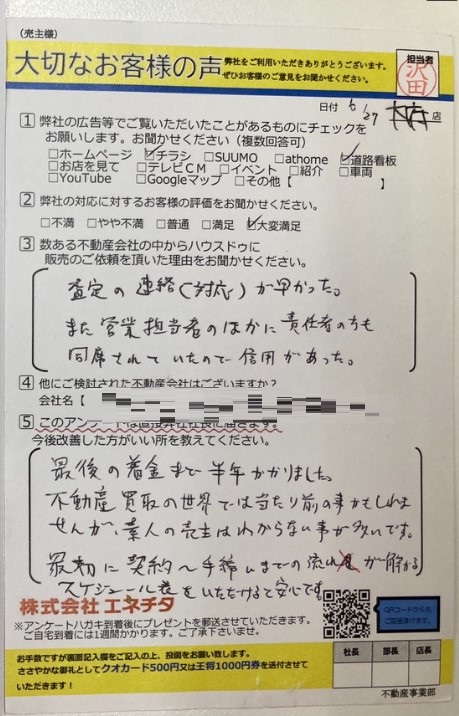 (売主様)
大切なお客様の声
弊社をご利用いただきありがとうございます。
ぜひお客様のご意見をお聞かせください。
担当者
沢田
日付 6/27 本店
1 弊社の広告等でご覧いただいたことがあるものにチェックを
お願いします。お聞かせください(複数回答可)
□ホームページ ☑チラシ □SUUMO □athome ☑道路看板
□お店を見て □テレビCM □イベント □紹介 □車両
□YouTube □Googleマップ □その他【 】
2 弊社の対応に対するお客様の評価をお聞かせください。
□不満 □やや不満 □普通 □満足 ☑大変満足
3 数ある不動産会社の中からハウスドゥに
販売のご依頼を頂いた理由をお聞かせください。
査定の連絡(対応)が早かった。
また営業担当者のほかに責任者の方も
同席されていたので信用があった。
4 他にご検討された不動産会社はございますか?
会社名【
5 このアンケートは直接弊社社長に届きます。
今後改善した方がいい所を教えてください。
最後の着金まで半年かかりました。
不動産買取の世界では当たり前の事かもしれま
せんが、素人の売主はわからない事が多いです。
最初に契約〜手締いまでの流れが解かる
スケジュール表をいただけると安心です。
株式会社 エネチタ
QRコードからも
ご回答頂けます。
※アンケートハガキ到着後にプレゼントを郵送させていただきます。
ご自宅到着には1週間かかります。ご了承くださいませ。
お手数ですが裏面記入欄をご記入の上、投函をお願い致します。
ささやかな御礼としてクオカード500円又は王将1000円券を送付させて
いただきます!
社長 部長 店長
不動産事業部